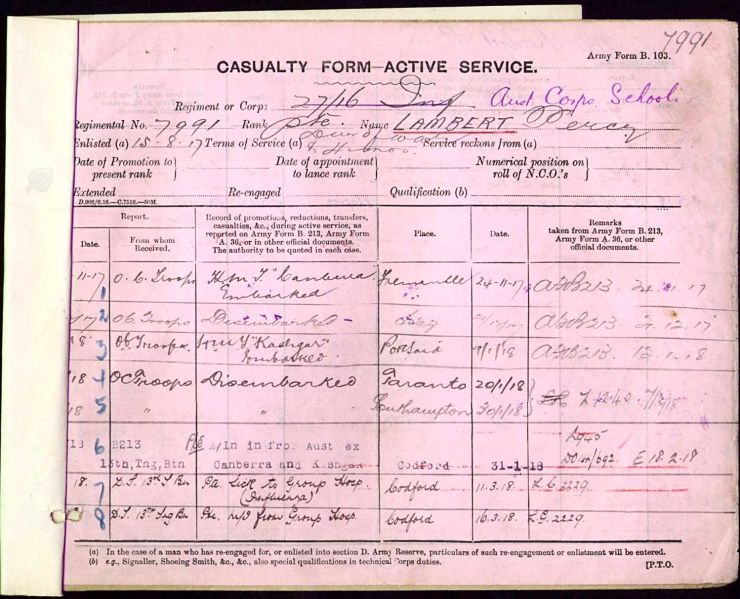 7991
Army Form B. 103.
CASUALTY FORM—ACTIVE SERVICE.
Regiment or Corps 27/16 Inf Aust Corps School
Regimental No. 7991 Rank Pte. Name LAMBERT Percy
Enlisted (a) 15.8.17 Terms of Service (a) Service reckons from (a)
Date of Promotion to present rank
Date of appointment to lance rank
Numerical position on roll of N.C.O.'s
Extended Re-engaged Qualification (b)
D.902/6.16.—C.7516.—50M.
Report.
Date. From whom Received.
Record of promotions, reductions, transfers, casualties, &c., during active service, as reported on Army Form B. 213, Army Form A. 36, or in other official documents. The authority to be quoted in each case.
Place.
Date.
Remarks taken from Army Form B. 213, Army Form A. 36, or other official documents.
11-17 1 O.C. Troops H.M.T. "Canberra" Embarked Fremantle 24-11-17 AFB213 17
17 2 OC Troops Disembarked AFB213 12.17
18 3 OC Troops "Kashgar" Embarked Port Said 9/1/18 AFB213 12.1.18
18 4 OC Troops Disembarked Taranto 20/1/18
18 5 " " Southampton 30/1/18
18 6 B213 Pte M/In in from Aust ex
13th,Tng,Btn Canberra and Kashgar Codford 31-1-18 E 18.2.18
18. 7 13th T Bn Pte. Sick to Group Hosp. (Influenza) Codford 11.3.18. 2229.
8 13th Tng Bn Pte. from Group Hosp Codford 16.3.18. 2229.
(a) In the case of a man who has re-engaged for, or enlisted into section D. Army Reserve, particulars of such re-engagement or enlistment will be entered.
(b) e.g., Signaller, Shoeing Smith, &c., &c., also special qualifications in technical Corps duties.
[P.T.O.